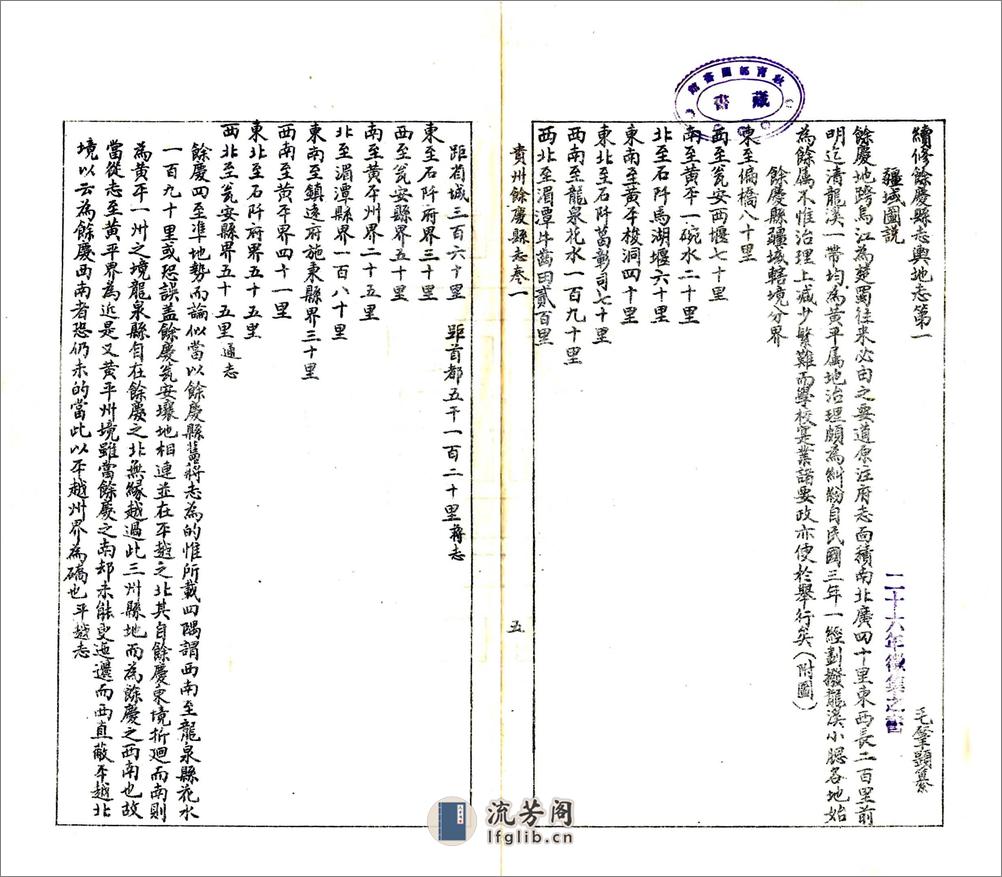 續修餘慶縣志輿地志第一
毛肇顯纂
疆域圖說
餘慶地跨烏江為楚蜀往來必由之要道原注府志面積南北廣四十里東西長二百里前
明迄清龍溪一帶均為黃平屬地治理頗為糾紛自民國三年一經劃撥龍溪小腮各地始
為餘属不惟治理上减少繁難而學校實業諸要政亦便於舉行矣(附圖)
餘慶縣疆域轄境分界
東至偏橋八十里
西至瓮安西堰七十里
南至黃平一碗水二十里
北至石阡馬湖堰六十里
東南至黃平梭洞四十里
東北至石阡葛彰司七十里
西南至龍泉花水一百九十里
西北至湄潭牛啬田貳百里
貴州餘慶縣志卷一
五
距省城三百六十里 距首都五千一百二十里蒋志
東至石阡府界三十里
西至瓮安縣界五十里
南至黃平州界二十五里
北至湄潭縣界一百八十里
東南至鎮遠府施秉縣界三十里
西南至黃平界四十一里
東北至石阡府界五十五里
西北至瓮安縣界五十五里通志
餘慶四至準地勢而論似當以餘慶縣舊蒋志為的惟所載四隅謂西南至龍泉縣花水
一百九十里或恐誤蓋餘慶瓮安壤地相連並在平越之北其自餘慶東境折迴而南則
為黃平一州之境龍泉縣自在餘慶之北無緣越過此三州縣地而為餘慶之西南也故
當從志至黃平界為近是又黃平州境雖當餘慶之南却未能更迤邐而西直蔽平越北
境以云為餘慶西南者恐仍未的當此以平越州界為礄也平越志
黔南邨圖書館
藏書
二十六年徵集之書
流芳阁
lfglib.cn